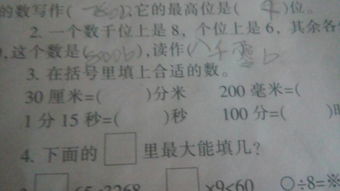 的数写作( ),它的最高位是( )位。
2. 一个数千位上是8,个位上是6,其余各
,这个数是( ),读作(八千零
3. 在括号里填上合适的数。
30厘米=( )分米 200毫米=(
1分15秒=( )秒 100分=(
4. 下面的□里最大能填几?
□×9<60 ○÷8=※